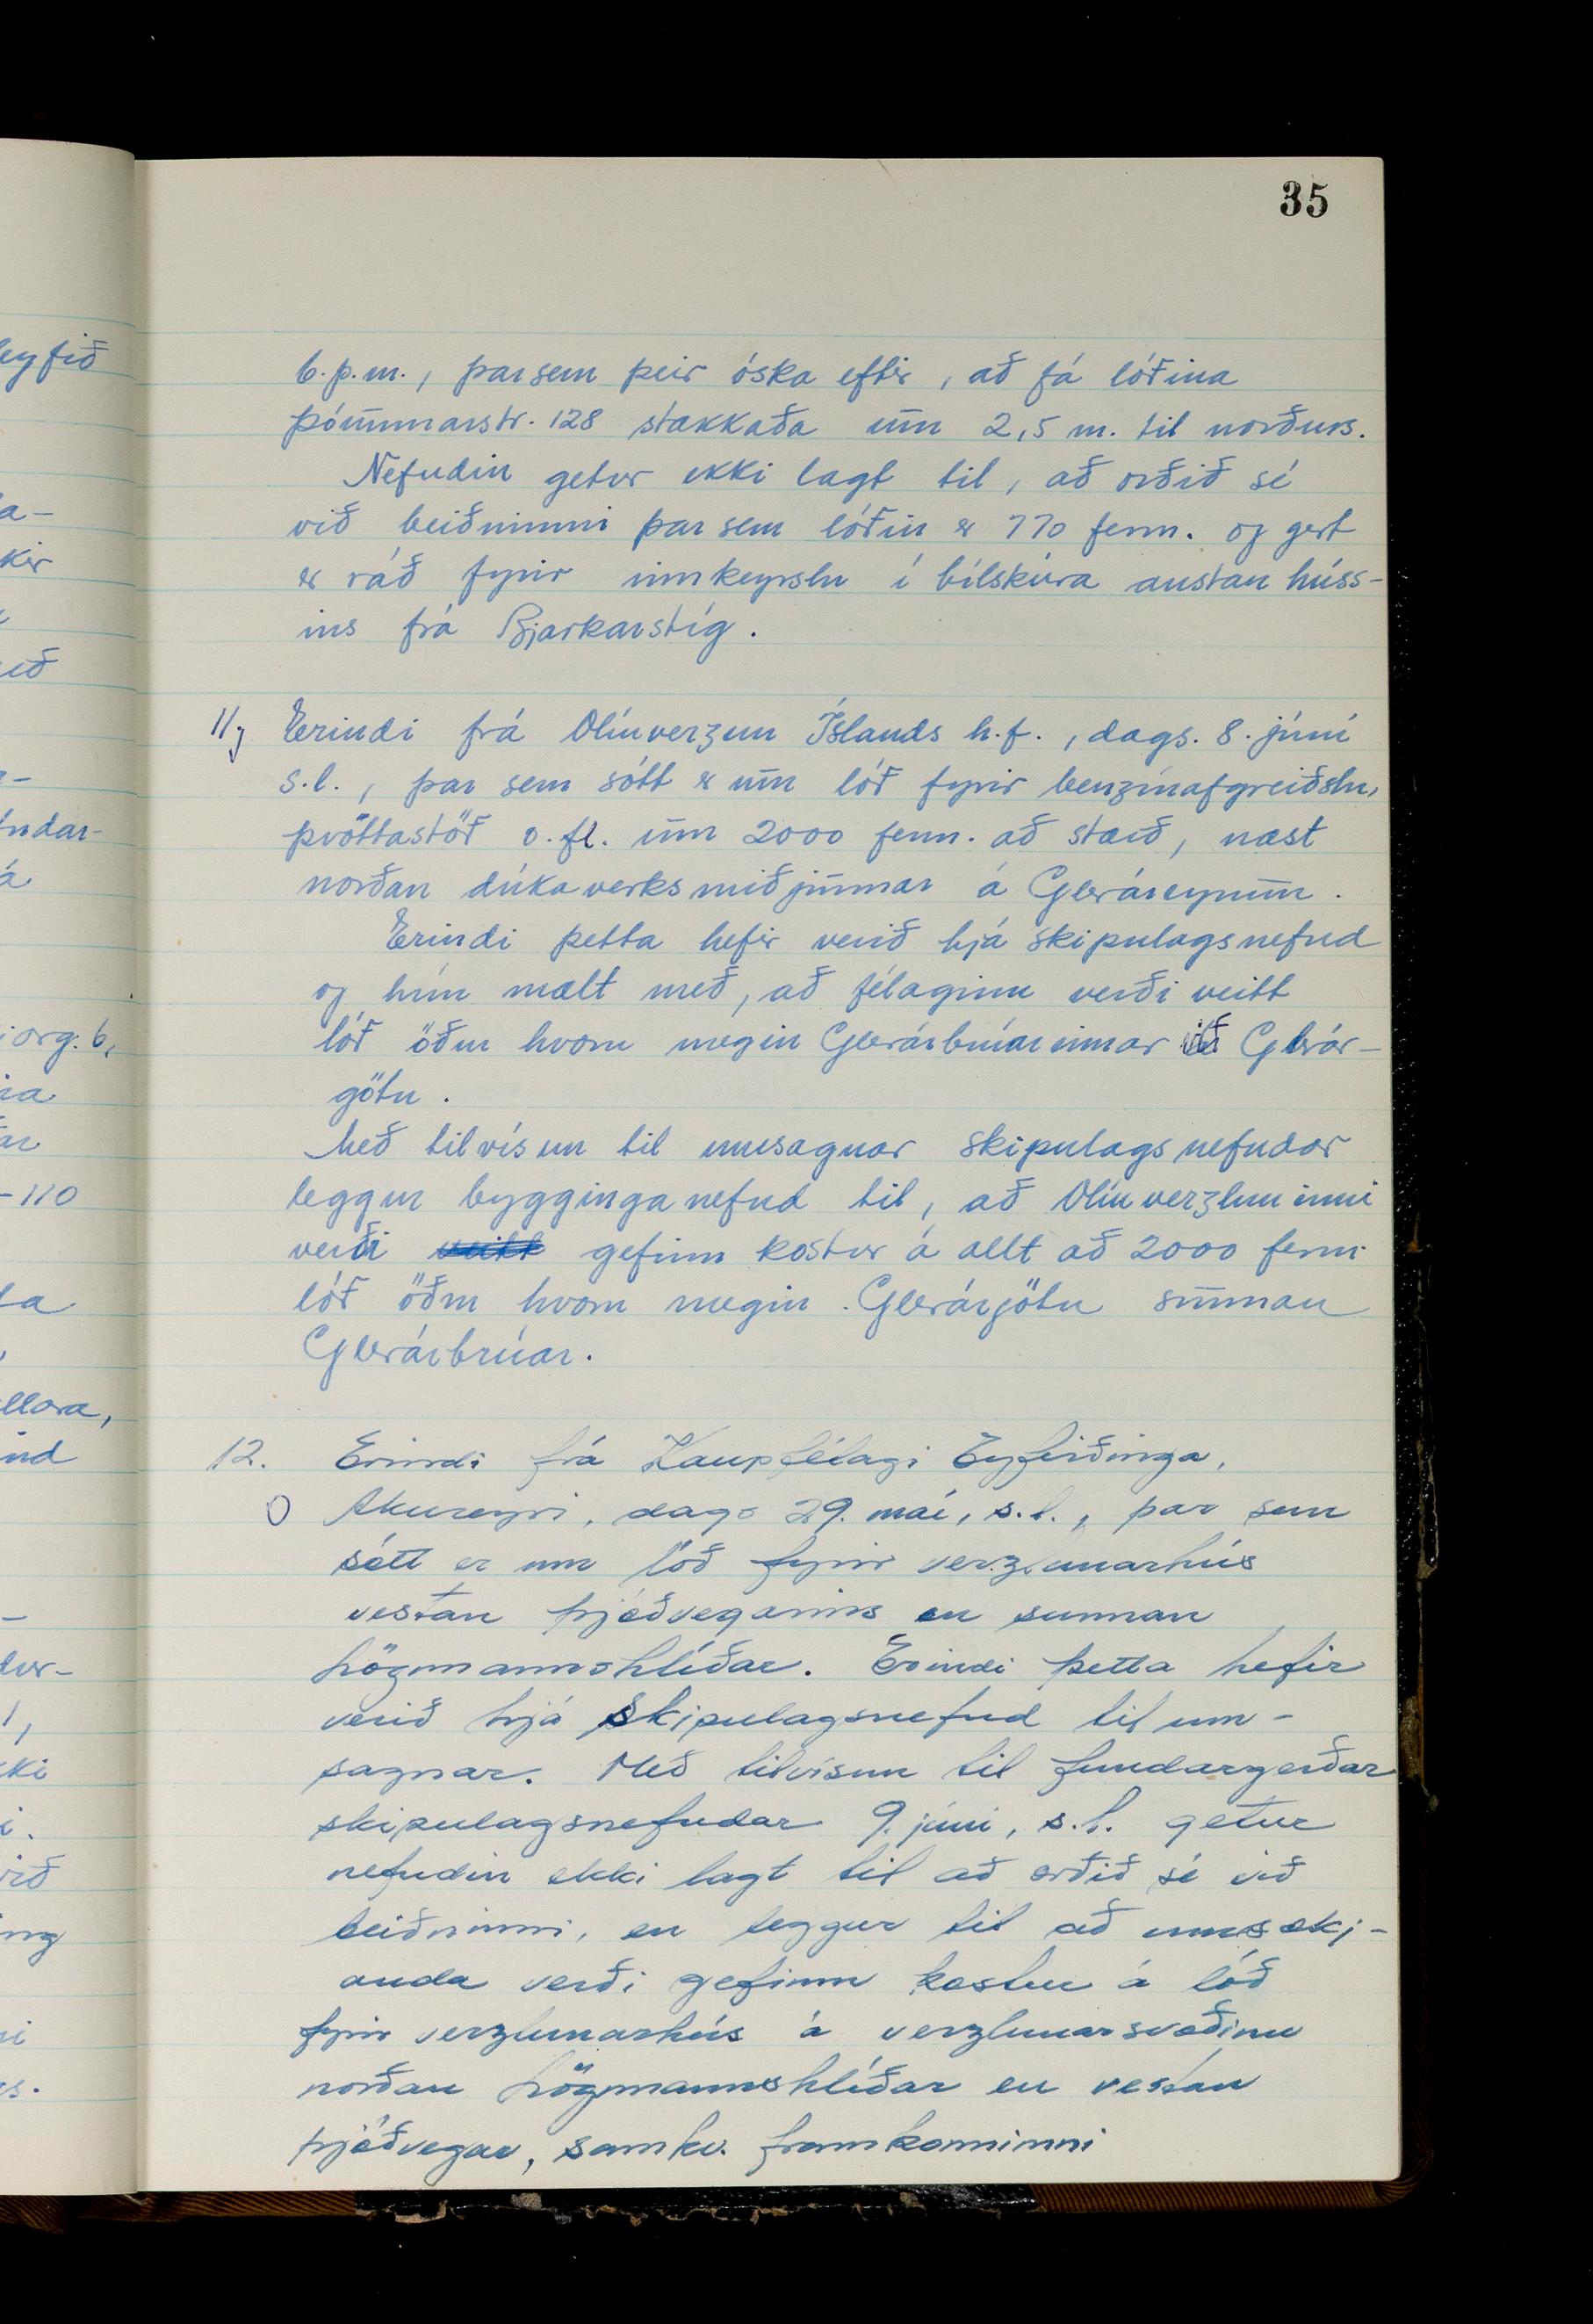 35
6. þ.m., þar sem þeir óska eftir, að fá lóðina
Þórunnarstr. 128 stækkaða um 2,5 m. til norðurs.
Nefndin getur ekki lagt til, að orðið sé
við beiðninni þar sem lóðin er 770 ferm. og gert
er ráð fyrir innkeyrslu í bílskúra austan húss-
ins frá Bjarkarstíg.
11) Erindi frá Olíuverzun Íslands h.f., dags. 8. júní
s.l., þar sem sótt er um lóð fyrir benzínafgreiðslu,
þvottastöð o.fl. um 2000 ferm. að stærð, næst
norðan dúkaverksmiðjunnar á Gleráreyrum.
Erindi þetta hefir verið hjá skipulagsnefnd
og hún mælt með, að félaginu verði veitt
lóð öðru hvoru megin Glerárbrúarinnar við Glerár-
götu.
Með tilvísun til umsagnar skipulagsnefndar
leggur bygginganefnd til, að Olíuverzluninni
verði veitt gefinn kostur á allt að 2000 ferm
lóð öðru hvoru megin Glerárgötu sunnan
Glerárbrúar.
12. Erindi frá Kaupfélagi Eyfirðinga,
Akureyri, dags 29. maí, s.l., þar sem
sótt er um lóð fyrir verzlunarhús
vestan þjóðvegarins en sunnan
Lögmannshlíðar. Erindi þetta hefir
verið hjá Skipulagsnefnd til um-
sagnar. Með tilvísun til fundargerðar
skipulagsnefndar 9. júní, s.l. getur
nefndin ekki lagt til að orðið sé við
beiðninni, en leggur til að umsækj-
anda verði gefinn kostur á lóð
fyrir verzlunarhús á verzlunarsvæðinu
norðan Lögmannshlíðar en vestan
þjóðvegar, samkv. framkominni